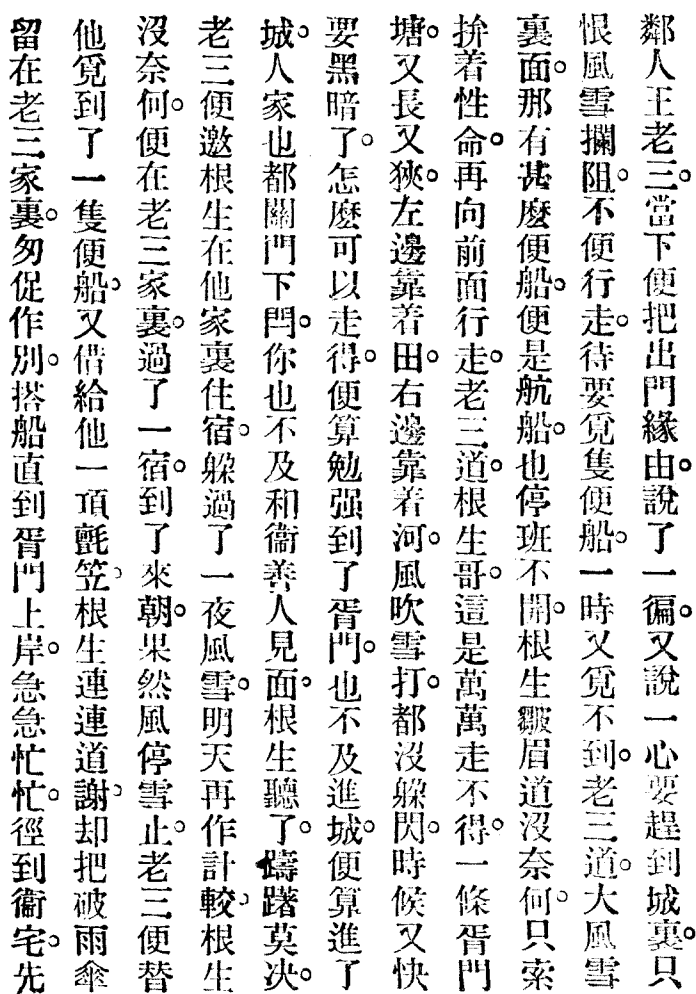 鄰人王老三。當下便把出門緣由。說了一徧。又說一心要趕到城裏。只
恨風雪攔阻。不便行走。待要覓隻便船。一時又覓不到。老三道。大風雪
裏面。那有甚麽便船。便是航船。也停班不開。根生皺眉道沒奈何。只索
拚着性命。再向前面行走。老三道。根生哥。這是萬萬走不得。一條胥門
塘。又長又狹。左邊靠着田。右邊靠着河。風吹雪打。都沒躲閃。時候又快
要黑暗了。怎麽可以走得。便算勉强到了胥門。也不及進城。便算進了
城。人家也都關門下閂。你也不及和衞善人見面。根生聽了。躊躇莫决。
老三便邀根生在他家裏住宿。躲過了一夜風雪。明天再作計較。根生
沒奈何。便在老三家裏。過了一宿。到了來朝。果然風停雪止。老三便替
他覓到了一隻便船。又借給他一頂氈笠。根生連連道謝。却把破雨傘
留在老三家裏。匆促作別。搭船直到胥門上岸。急急忙忙。徑到衞宅。先